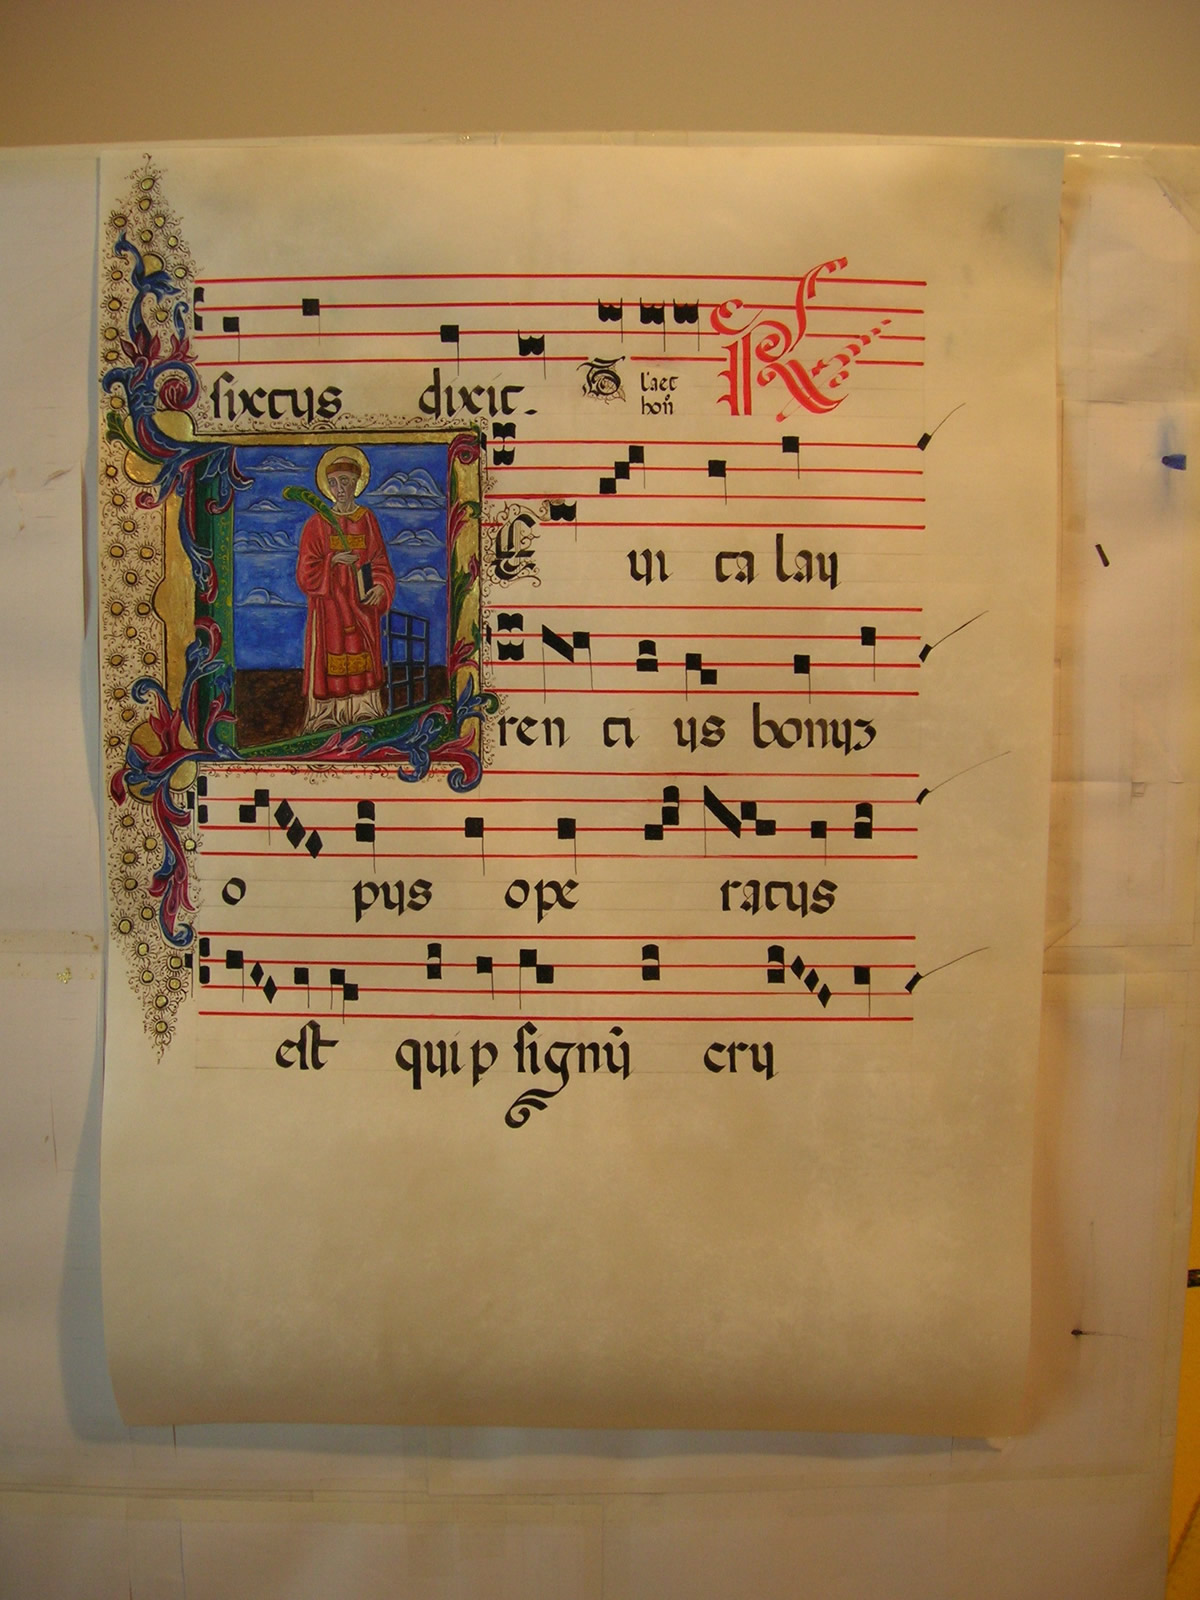 sixtus dixit.
R
l'aet
hon̄
E ui ta lau
ren ti us bonuʒ
o pus ope ratus
est qui p signū cru